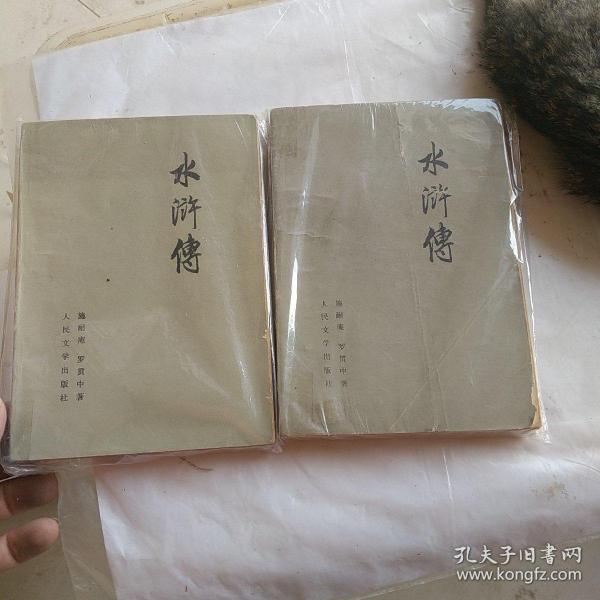 水滸傳
施耐庵 罗贯中著
人民文学出版社
水滸傳
施耐庵 罗贯中著
人民文学出版社
孔夫子旧书网
www.kongfz.com